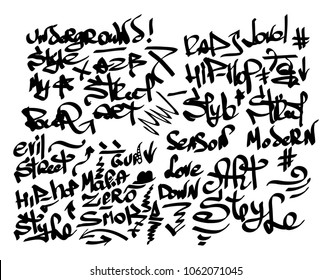 underground!
Style
My
Street
Art
HIP-HOP
Style
Street
evil
Street
Season
Modern
Gun
Love
Art
HIP-hop
Mafia
Zero
Down
Style
Smok
Steyle
shutterstock.com · 1062071045